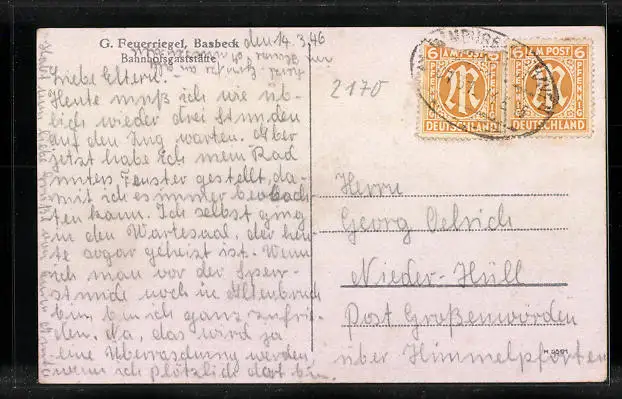 G. Feuerriegel, Basbeck
Bahnhofsgaststätte
den 14.3.46
2170
Liebe Eltern!
Heute muß ich wie üb-
lich wieder drei Stunden
auf den Zug warten. Aber
jetzt habe ich mein Rad
unters Fenster gestellt, da-
mit ich es immer beobach
ten kann. Ich selbst ging
in den Wartesaal, der heu-
te sogar geheizt ist. Wenn
ich man vor der Sperr-
stunde noch in Altenbruch
bin, bin ich ganz zufrie-
den. Ja, das wird ja
eine Überraschung werden,
wenn ich plötzlich dort bin.
6 AM POST 6
PFENNIG
M
DEUTSCHLAND
6 AM POST 6
PFENNIG
M
DEUTSCHLAND
Herrn
Georg Oelrich
Nieder-Hüll
Post Großenwörden
über Himmelpforten